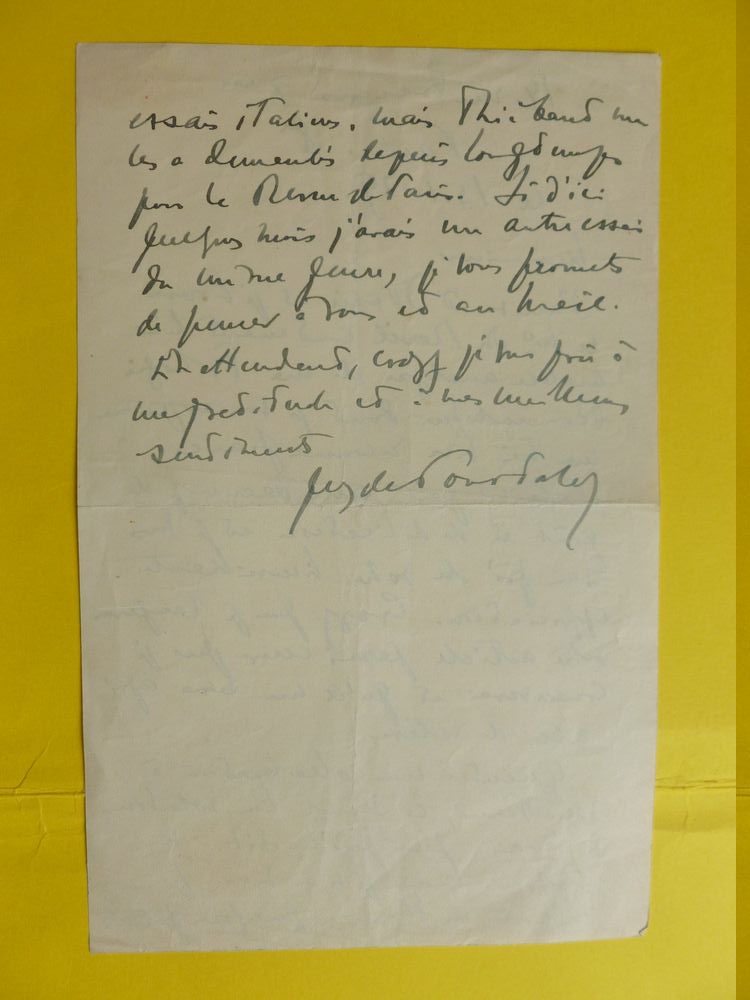 essais italiens, mais Thiébaud me
les a demandés depuis longtemps
pour la Revue de Paris. Si d'ici
quelques mois j'avais un autre essai
du même genre, je vous promets
de penser à vous et au
En attendant, croyez je vous prie à
ma gratitude et à mes meilleurs
sentiments
Guy de Pourtalès